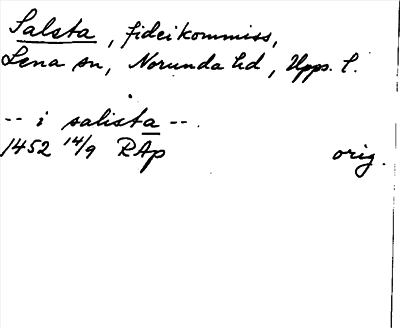 Salsta, fideikommiss,
Lena sn, Norunda hd, Upps. l.
-- i salista --.
1452 14/9 RAp orig.